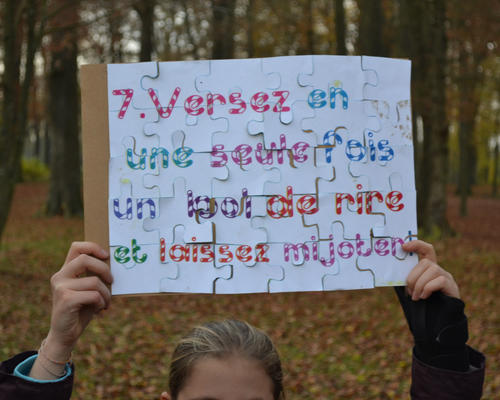 7. Versez en
une seule fois
un bol de rire
et laissez mijoter